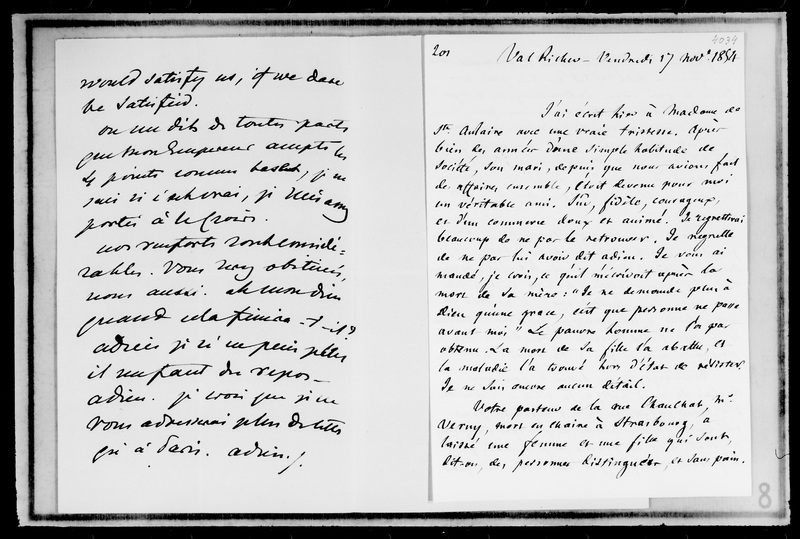 would satisfy us, if we dare
be satisfied.
on me dit de toutes parts
que mon Empereur accepte les
4 points comme bases, je ne
sais si c'est vrai, je suis assez
portée à le croire.
nos renforts sont considé=
rables. Vous serez obstinés,
nous aussi. ah mon dieu
quand cela finira-t-il?
adieu je n'en peux plus
il me faut du repos-
adieu. je crois que je ne
vous adresserai plus de lettres
qu'à Paris. adieu.
4034
201
Val Richer - Vendredi 17 Nov. 1854
J'ai écrit hier à Madame de
Ste Aulaire avec une vraie tristesse. Après
bien des années d'une simple habitude de
société, son mari, depuis que nous avions fait
des affaires ensemble, étoit devenu pour moi
un véritable ami. Sûr, fidèle, courageux,
et d'un commerce doux et animé. Je regretterai
beaucoup de ne pas le retrouver. Je regrette
de ne pas lui avoir dit adieu. Je vous ai
mandé, je crois, ce qu'il m'écrivoit après la
mort de sa mère: "Je ne demande plus à
Dieu qu'une grace, c'est que personne ne passe
avant moi." Le pauvre homme ne l'a pas
obtenu. La mort de sa fille l'a abattu, et
la maladie l'a trouvé hors d'état de résister.
Je ne sais encore aucun détail.
Votre pasteur de la rue Chauchat, Mr.
Verny, mort en chaire à Strasbourg, a
laissé une femme et une fille qui sont,
dit-on, des personnes distinguées, et sans pain.
8